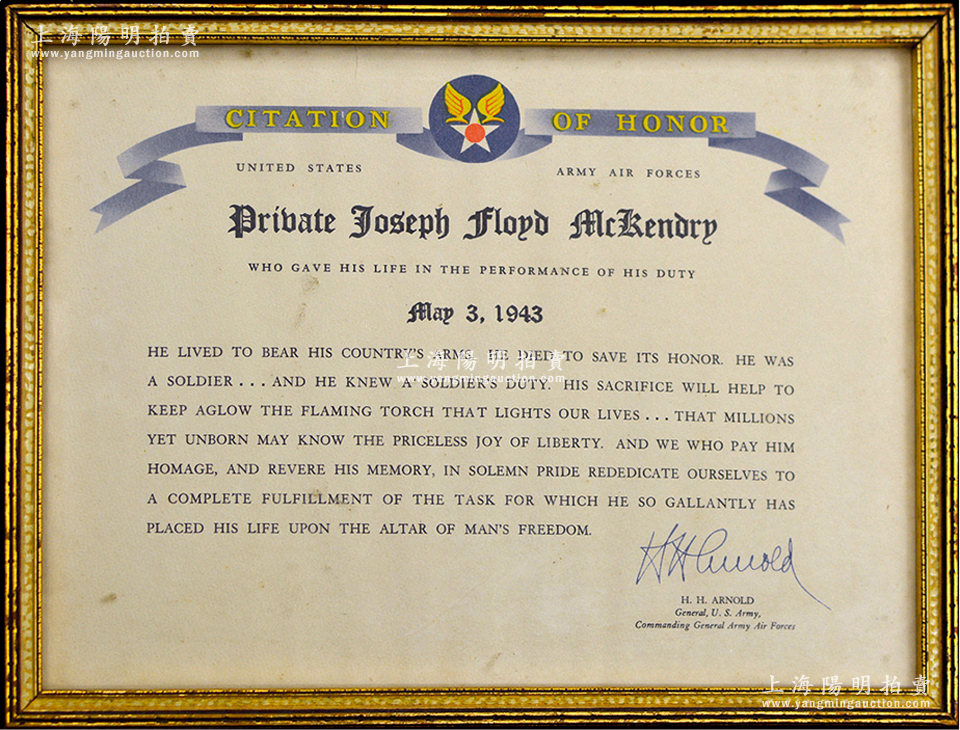 上海陽明拍賣
www.yangmingauction.com
CITATION OF HONOR
UNITED STATES ARMY AIR FORCES
Private Joseph Floyd McKendry
WHO GAVE HIS LIFE IN THE PERFORMANCE OF HIS DUTY
May 3, 1943
HE LIVED TO BEAR HIS COUNTRY'S ARMS. HE DIED TO SAVE ITS HONOR. HE WAS
上海陽明拍賣
www.yangmingauction.com
A SOLDIER . . . AND HE KNEW A SOLDIER'S DUTY. HIS SACRIFICE WILL HELP TO
KEEP AGLOW THE FLAMING TORCH THAT LIGHTS OUR LIVES . . . THAT MILLIONS
YET UNBORN MAY KNOW THE PRICELESS JOY OF LIBERTY. AND WE WHO PAY HIM
HOMAGE, AND REVERE HIS MEMORY, IN SOLEMN PRIDE REDEDICATE OURSELVES TO
A COMPLETE FULFILLMENT OF THE TASK FOR WHICH HE SO GALLANTLY HAS
PLACED HIS LIFE UPON THE ALTAR OF MAN'S FREEDOM.
H H Arnold
H. H. ARNOLD
General, U. S. Army,
Commanding General Army Air Forces
上海陽明拍賣
www.yangmingauction.com